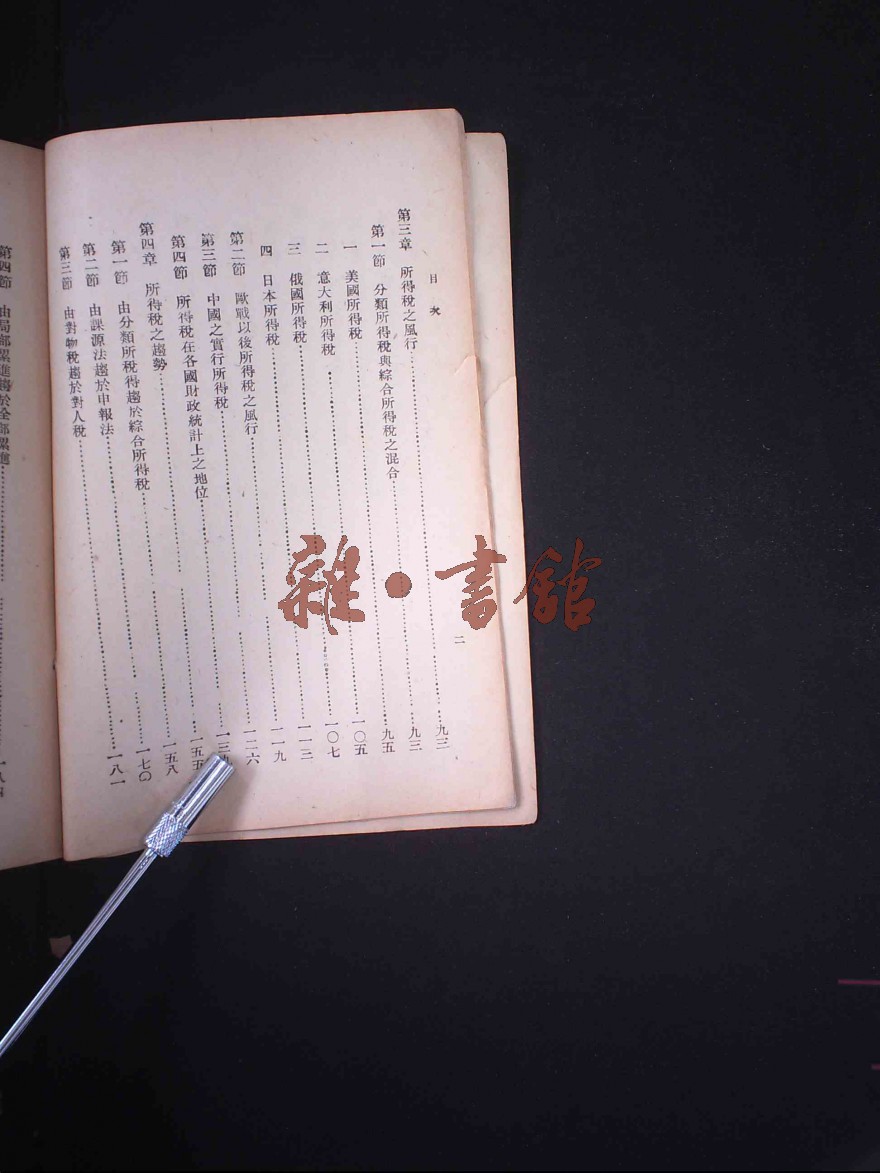 目次
二
第三章 所得稅之風行……九三
第一節 分類所得稅與綜合所得稅之混合……九三
一 美國所得稅……九五
二 意大利所得稅……一〇五
三 俄國所得稅……一〇七
四 日本所得稅……一一三
第二節 歐戰以後所得稅之風行……一一九
第三節 中國之實行所得稅……一二六
第四節 所得稅在各國財政統計上之地位……一三
第四章 所得稅之趨勢……一五五
第一節 由分類所稅得趨於綜合所得稅……一五八
第二節 由課源法趨於申報法……一七〇
第三節 由對物稅趨於對人稅……一八一
第四節 由局部累進趨於全部累進……一八四
雜·書館